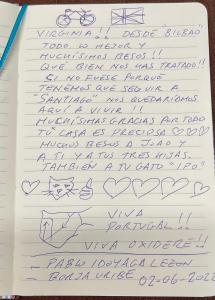 VIRGINIA!! DESDE BILBAO
TODO LO MEJOR Y
MUCHÍSIMOS BESOS!!
QUÉ BIEN NOS HAS TRATADO!!
SI NO FUESE PORQUE
TENEMOS QUE SEGUIR A
"SANTIAGO" NOS QUEDARÍAMOS
AQUÍ A VIVIR!!
MUCHÍSIMAS GRACIAS POR TODO
TU CASA ES PRECIOSA
MUCHOS BESOS A JOAO Y
A TI Y A TUS TRES HIJAS.
TAMBIÉN A TU GATO "IPO"
VIVA
PORTUGAL!!
VIVA
- PABLO IDOYAGA
- BORJA URIBE 02-06-2022